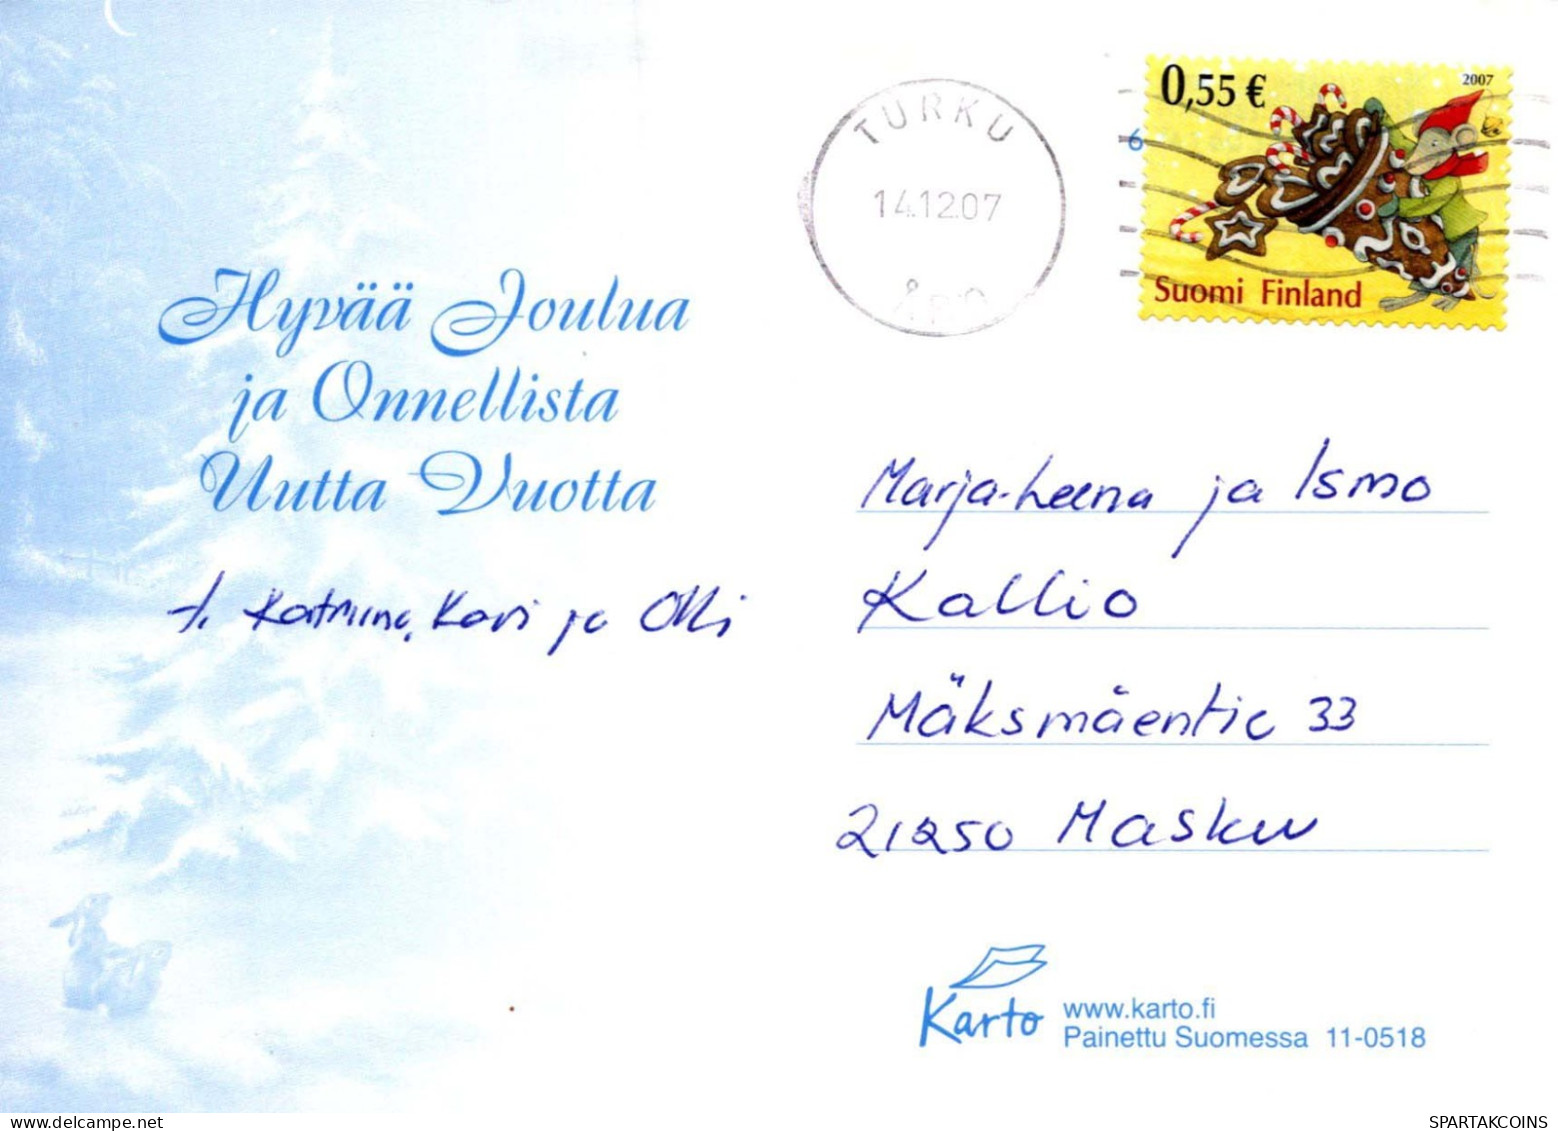 TURKU
14.12.07
Åbo
0,55 €
2007
6
Suomi Finland
Hyvää Joulua
ja Onnellista
Uutta Vuotta
t. Katriina, Kari ja Olli
Marja-Leena ja Ismo
Kallio
Mäksmäentie 33
21250 Masku
Karto
www.karto.fi
Painettu Suomessa 11-0518
SPARTAKCOINS